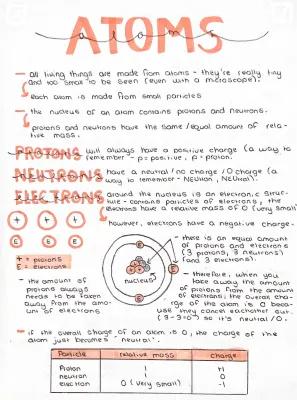 ATOMS
atoms
all living things are made from atoms - they're really tiny
and too small to be seen (even with a microscope)
each atom is made from small particles
the nucleus of an atom contains protons and neutrons.
protons and neutrons have the same/equal amount of rela-
tive mass.
PROTONS will always have a positive charge (a way to
remember - p = positive, p = proton.
NEUTRONS have a neutral/no charge / 0 charge (a
way to remember - NEUtron, NEUtral).
ELECTRONS around the nucleus is an electronic struc-
ture - contains particles of electrons, the
electrons have a relative mass of 0 (very small)
however, electrons have a negative charge.
+ + +
E E E
+ = protons
E = electrons
nucleus
E
E
E
- there is an equal amount
of protons and electrons
(3 protons, 3 neutrons)
and 3 electrons).
- therefore, when you
take away the amount
of protons from the amount
of electrons, the overall cha-
rge of the atom is 0 beca-
use they cancel eachother out.
(3-3=0) so it's neutral/0.
- the amount of
protons always
needs to be taken
away from the amo-
unt of electrons
- if the overall charge of an atom is 0, the charge of the
atom just becomes 'neutral'.
Particle relative mass charge
Proton 1 +1
neutron 1 0
electron 0 (very small) -1